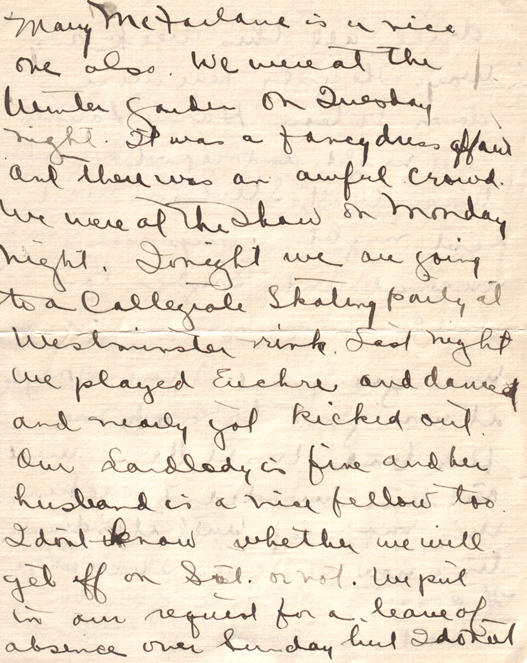 Mary McFarlane is a nice
one also. We were at the
Winter Garden on Tuesday
night. It was a fancy dress affair
and there was an awful crowd.
We were at the Shaw on Monday
night. Tonight we are going
to a Collegiate Skating party at
Westminster rink. Last night
we played Euchre and danced
and nearly got kicked out.
Our Landlady is fine and her
husband is a nice fellow too.
I dont know whether we will
get off on Sat. or not. We put
in our request for a leave of
absence over Sunday but I dont